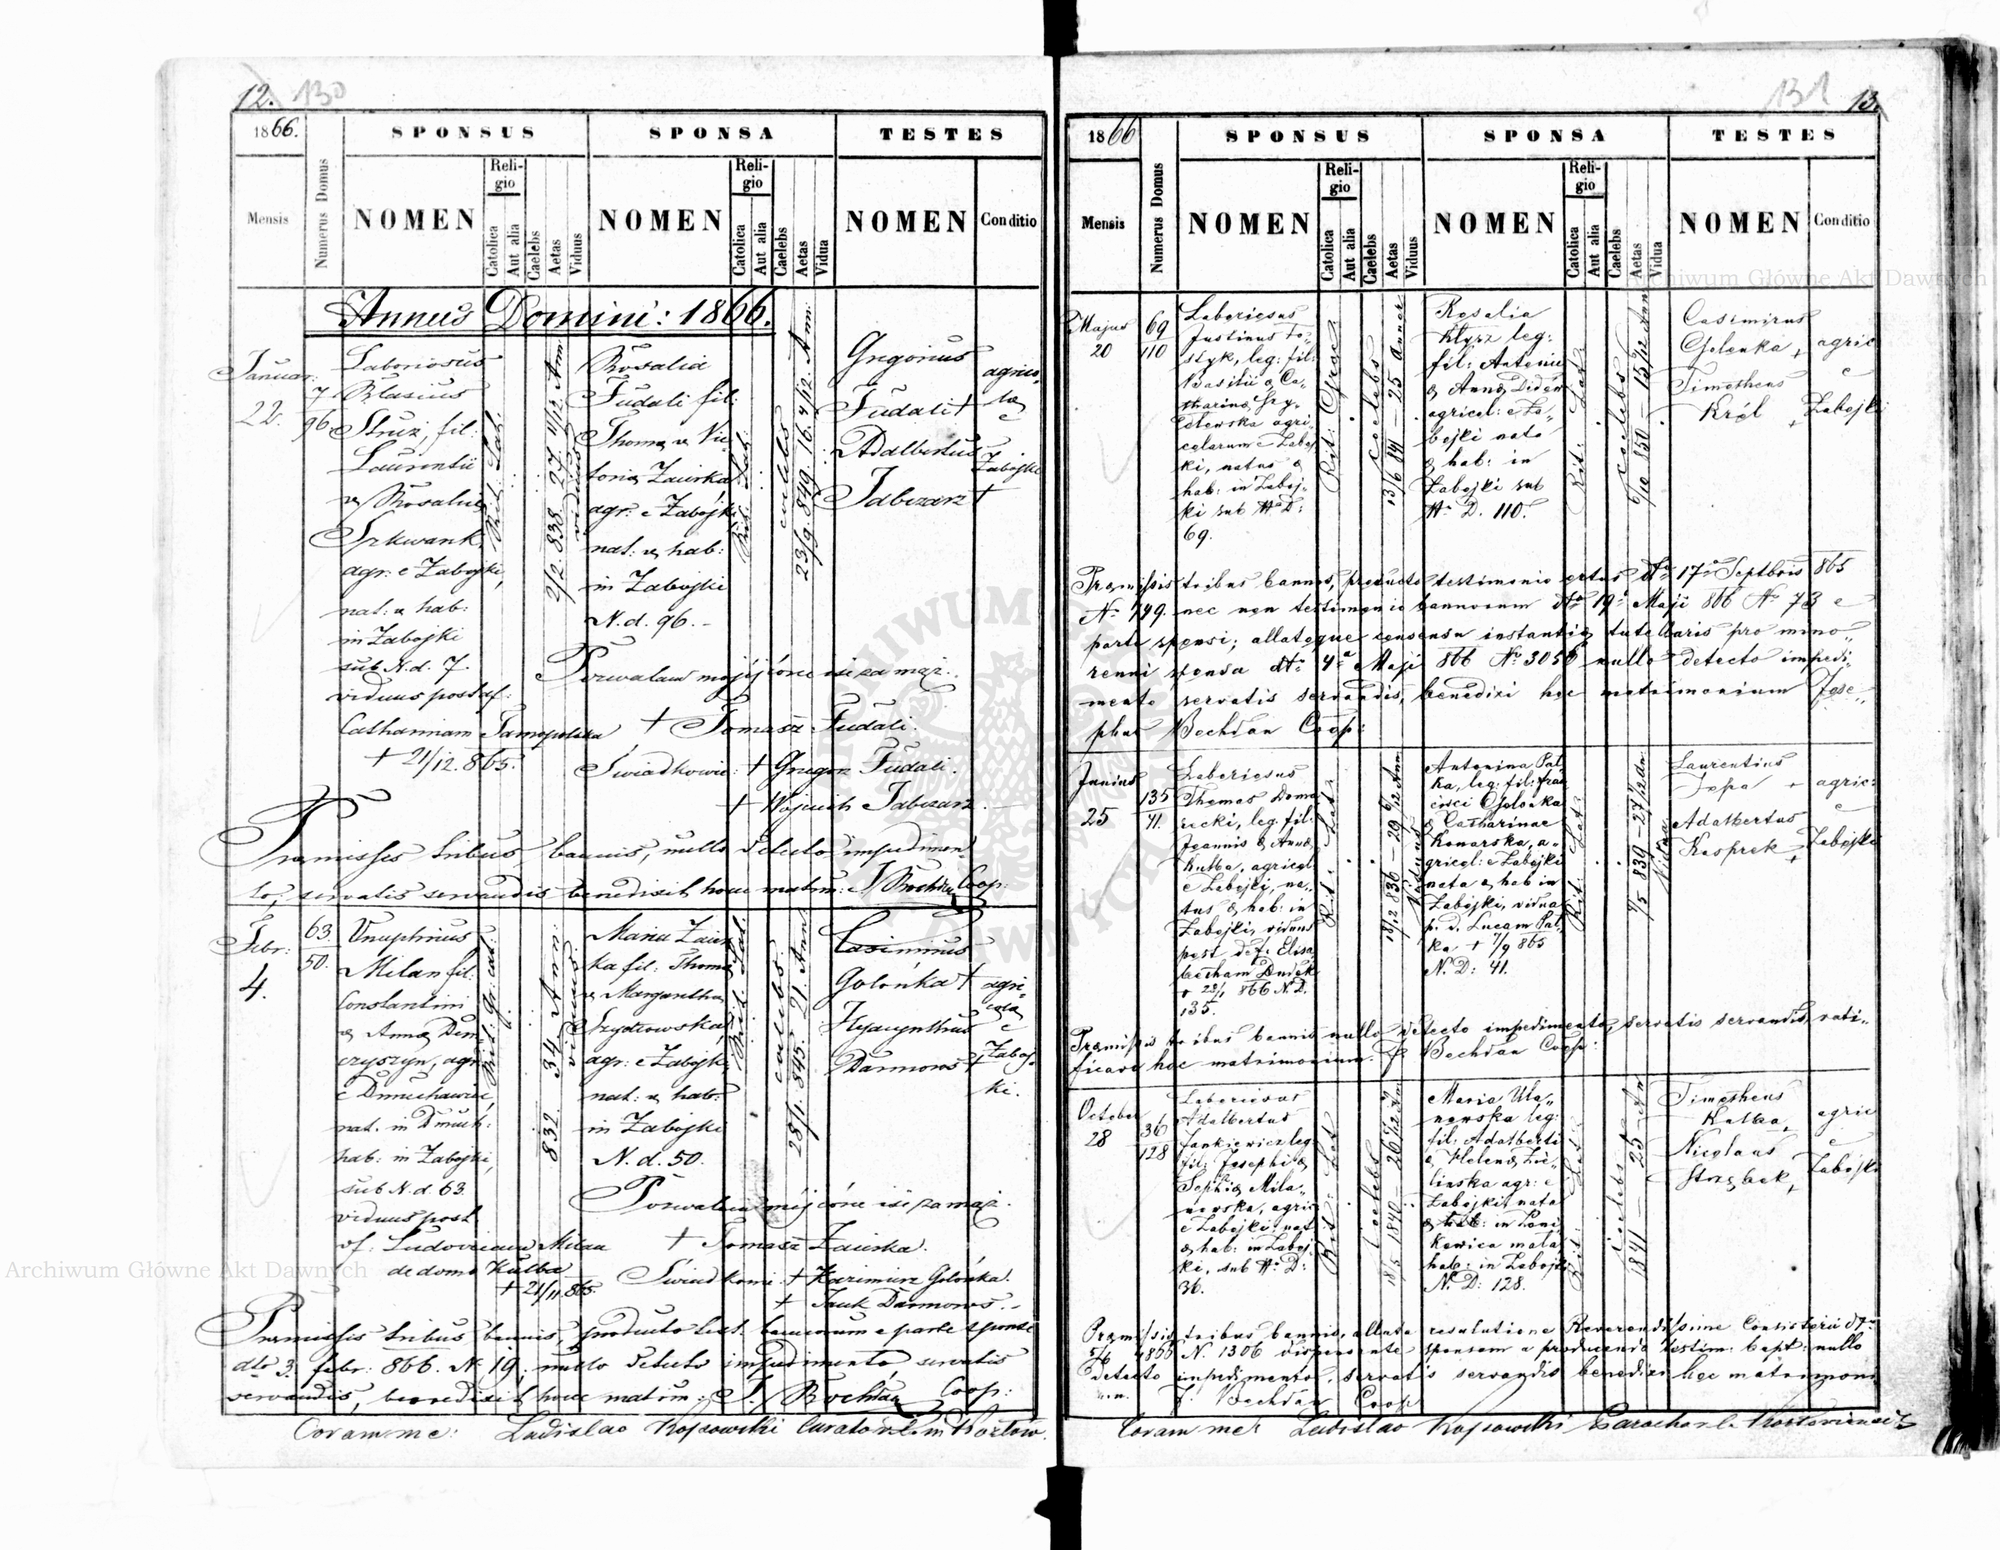 12. 130
1866.
SPONSUS
SPONSA
TESTES
Mensis
Numerus Domus
NOMEN
Religio
Catolica
Aut alia
Caelebs
Aetas
Viduus
NOMEN
Religio
Catolica
Aut alia
Caelebs
Aetas
Vidua
NOMEN
Conditio
Annus Domini: 1866.
Januar:
22.
7
96
Laboriosus
Blasius
Struz, fil:
Laurentii
& Rosaliae
agr: e Zabojki,
nat: & hab:
in Zabojki
sub N.d. 7.
viduus post df:
Catharinam
+ 21/12. 865.
Rit: Lat:
2/2. 838. 27 11/12 Ann
viduus
Rosalia
Fudali fil:
Thomae & Vic
toriae Zaiorka
agr: e Zabojki
nat: & hab:
in Zabojki
N.d. 96.-
Rit: Lat:
caelebs
23/9. 849. 16. 4/12. Ann:
Gregorius
Fudali +
Adalbertus
Tabizarz +
agrico-
lae
e
Zabojki
Pozwalam mojej córce iść za mąż.
+ Tomasz Fudali.
Świadkowie: + Gregor Fudali.
+ Wojciech Tabizarz
Praemissis tribus bannis, nullo detecto impedimen-
to, servatis servandis benedixit hocce matrim: J Bochdan Coop:
Febr:
4.
63.
50.
Onuphrius
Milan fil:
Constantini
& Annae Dem
czyszyn, agr:
nat. in
hab: in Zabojki,
sub N.d. 63.
viduus post
df: Ludovicam Milan
de domo Kulba
+ 21/11. 865.
Rit: Gr: cat:
832 34 Ann:
viduus
Maria Zaior
ka fil: Thomae
& Margarithae
Szydłowska,
agr: e Zabojki,
nat: & hab:
in Zabojki
N.d. 50.
Rit: Lat:
caelebs
28/1. 845. 21. Ann:
Casimirus
Golonka +
Hyacynthus
Darmoros +
agri-
colae
e
Zaboj-
ki.
Pozwalam mój córce iść za mąż.
+ Tomasz Zaiorka.
Świadkowie + Kazimierz Golonka.
+ Jacek Darmoros.-
Praemissis tribus bannis, producto test. bannorum e parte sponsi
dto 3. febr: 866. N. 19, nullo detecto impedimento, servatis
servandis, benedixit hocce matrim: J. Bochdan Coop:
Coram me: Ladislao Kopowski
131 13.
1866
SPONSUS
SPONSA
TESTES
Mensis
Numerus Domus
NOMEN
Religio
Catolica
Aut alia
Caelebs
Aetas
Viduus
NOMEN
Religio
Catolica
Aut alia
Caelebs
Aetas
Vidua
NOMEN
Conditio
Majus
20
69
110
Laboriosus
Justinus Ko-
styk, leg: fil:
Basilii & Ca-
tharinae
agri-
colarum e Zaboj
ki, natus &
hab: in Zaboj-
ki sub No D:
69.
coelebs
13/6 841 - 25 Annor
Rosalia
Kłysz leg:
fil: Antonii
& Annae
agricol: e Za-
bojki nata
& hab: in
Zabojki sub
No D. 110.
Rit: Lat:
coelebs
850 - 15 7/12 Ann
Casimirus
Golonka +
Timotheus
Król +
agric
e
Zabojki
Praemissis tribus bannis, producto testimonio ortus dto 17a Septbris 865
No 799. nec non testimonio bannorum dto 19a Maji 866 No 73 e
parte sponsi; allatoque consensu instantiae tutellaris pro mino-
renni sponsa dto 4a Maji 866 No 3056 nullo detecto impedi-
mento servatis servandis, benedixi hoc matrimonium Jose-
phus Bochdan Coop:
Junius
25
135
41.
Laboriosus
Thomas Doma
recki, leg: fil:
Joannis & Annae
Kulba, agricol:
e Zabojki, na-
tus & hab: in
Zabojki, viduus
post def. Elisa
betham Dudek
N.D.
135.
Rit: Lat:
18/12 836 - 29 6/12 Ann
Viduus
Antonina Pal-
ka, leg: fil: Fran
cisci Golonka
& Catharinae
Konarska, a-
gricol: e Zabojki
nata & hab in
Zabojki, vidua
p. d. Lucam Pal-
ka + 7/9 865
N. D: 41.
Rit: Lat:
839 - 27 1/12 An
Vidua
Laurentius
+
Adalbertus
Kasprek +
agric:
e
Zabojki
Praemissis tribus bannis nullo detecto impedimento, servatis servandis, rati-
ficavi hoc matrimonium. J Bochdan Coop:
October
28
36
128
Laboriosus
Adalbertus
Jankiewicz leg
fil: Josephi &
Sophiae Mila-
nowska, agric
e Zabojki nat
& hab: in Zaboj
ki, sub No D:
36.
Rit: Lat
Coelebs
18/5 1840 - 26 5/12 An
Maria Ula-
nowska leg:
fil: Adalberti
& Helenae Zie-
linska agr: e
Zabojki nata
hab: in Zabojki
N. D: 128.
Rit: Lat:
Coelebs
1841 - 25 - An
Timotheus
Kulba,
Nicolaus
Strzębek, +
agric
e
Zabojki
Praemissis tribus bannis, allata resolutione Reverendissimi Consistorii dto
5/6 1866 N. 1306 dispensante sponsam a producendo testim: bapt: nullo
detecto impedimento, servatis servandis benedixi hoc matrimoni
um. J. Bochdan Coop
Coram me: Ladislao Kopowski Parocho r. l.
Archiwum Główne Akt Dawnych
Archiwum Główne Akt Dawnych